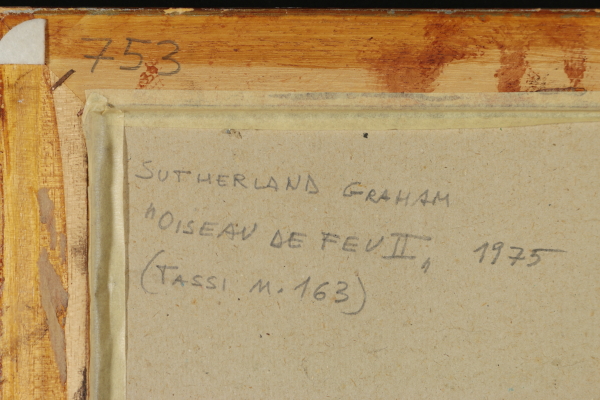 753
SUTHERLAND GRAHAM
"OISEAU DE FEU II" 1975
(TASSI N. 163)